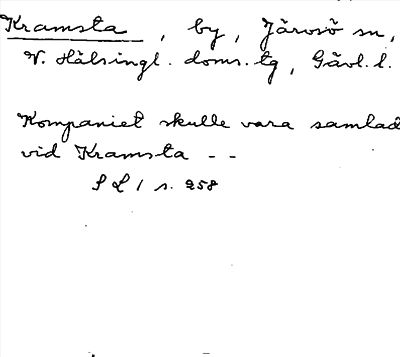 Kramsta, by, Järvsö sn,
V. Hälsingl. doms. tg, Gävl. l.
Kompaniet skulle vara samlad
vid Kramsta - -
S L 1 s. 258